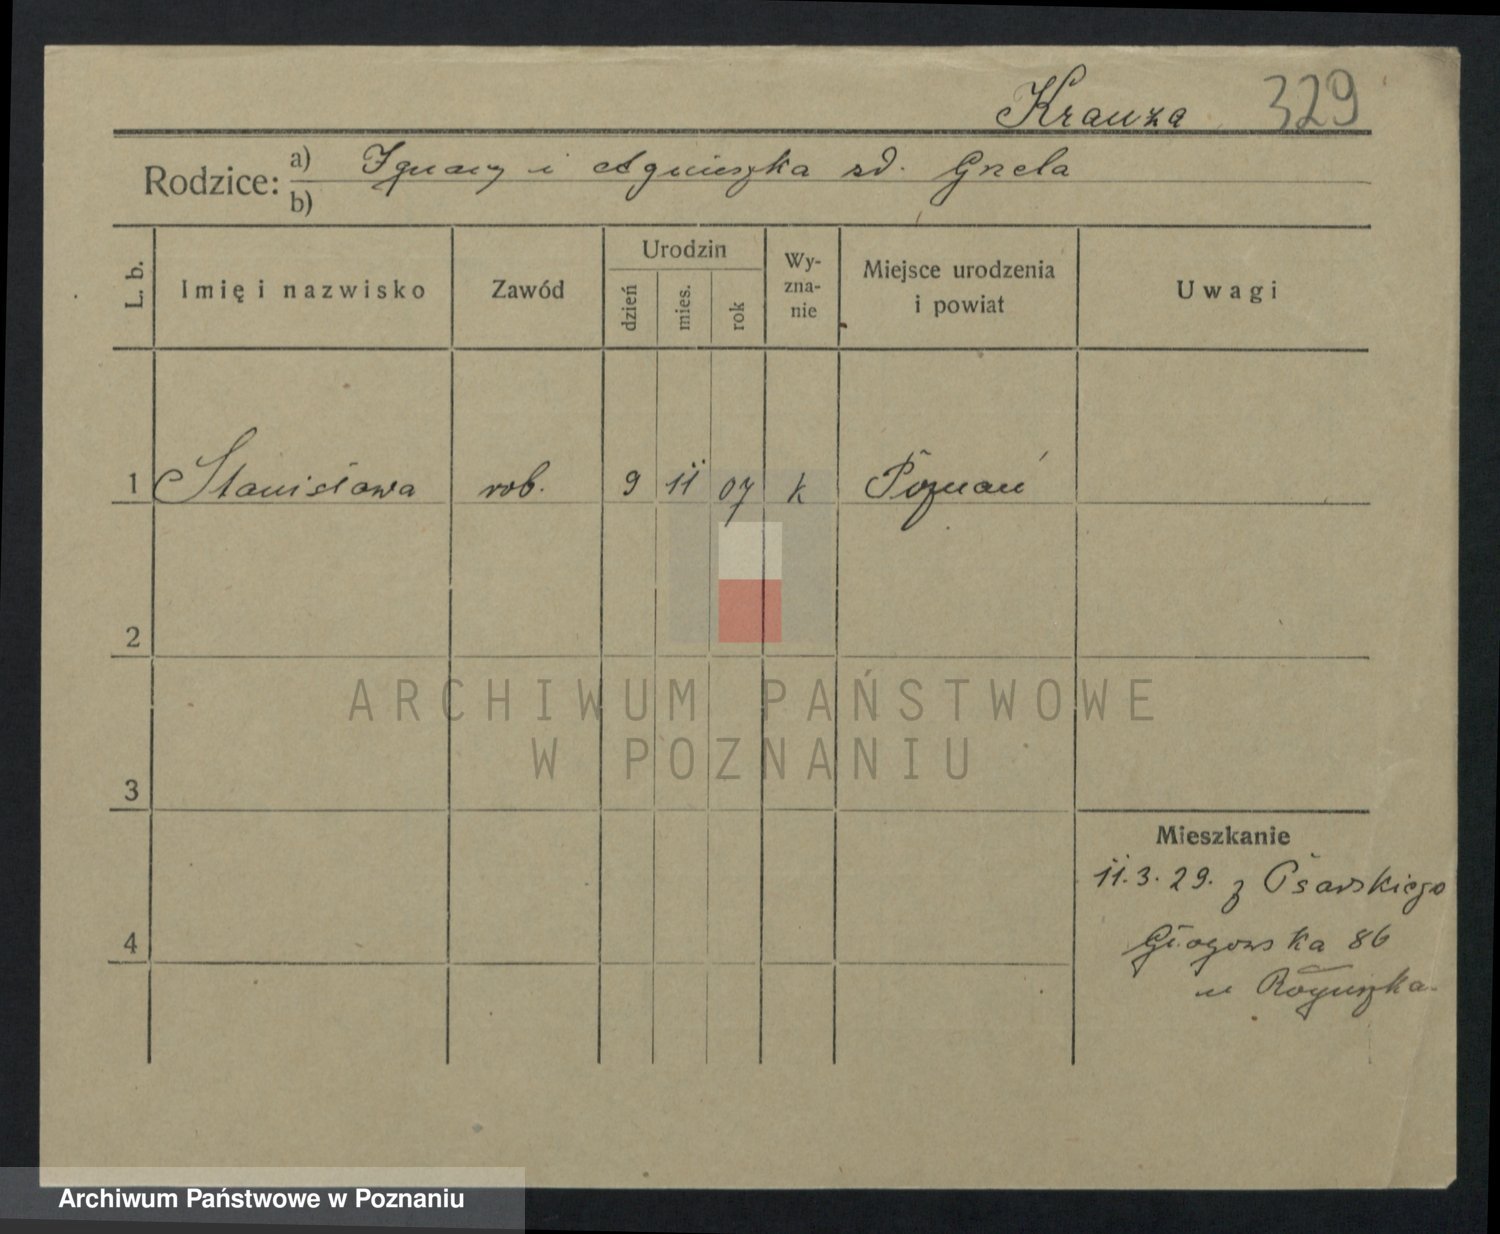 Krauza 329
Rodzice: a) Ignacy i Agnieszka zd. Grzela
b)
L. b. Imię i nazwisko Zawód Urodzin dzień mies. rok Wy-zna-nie Miejsce urodzenia i powiat Uwagi
1 Stanisława rob. 9 11 07 k Poznań
2
ARCHIWUM PAŃSTWOWE
W POZNANIU
3
Mieszkanie
11.3.29. z Psarskiego
4 Głogowska 86
u
Archiwum Państwowe w Poznaniu